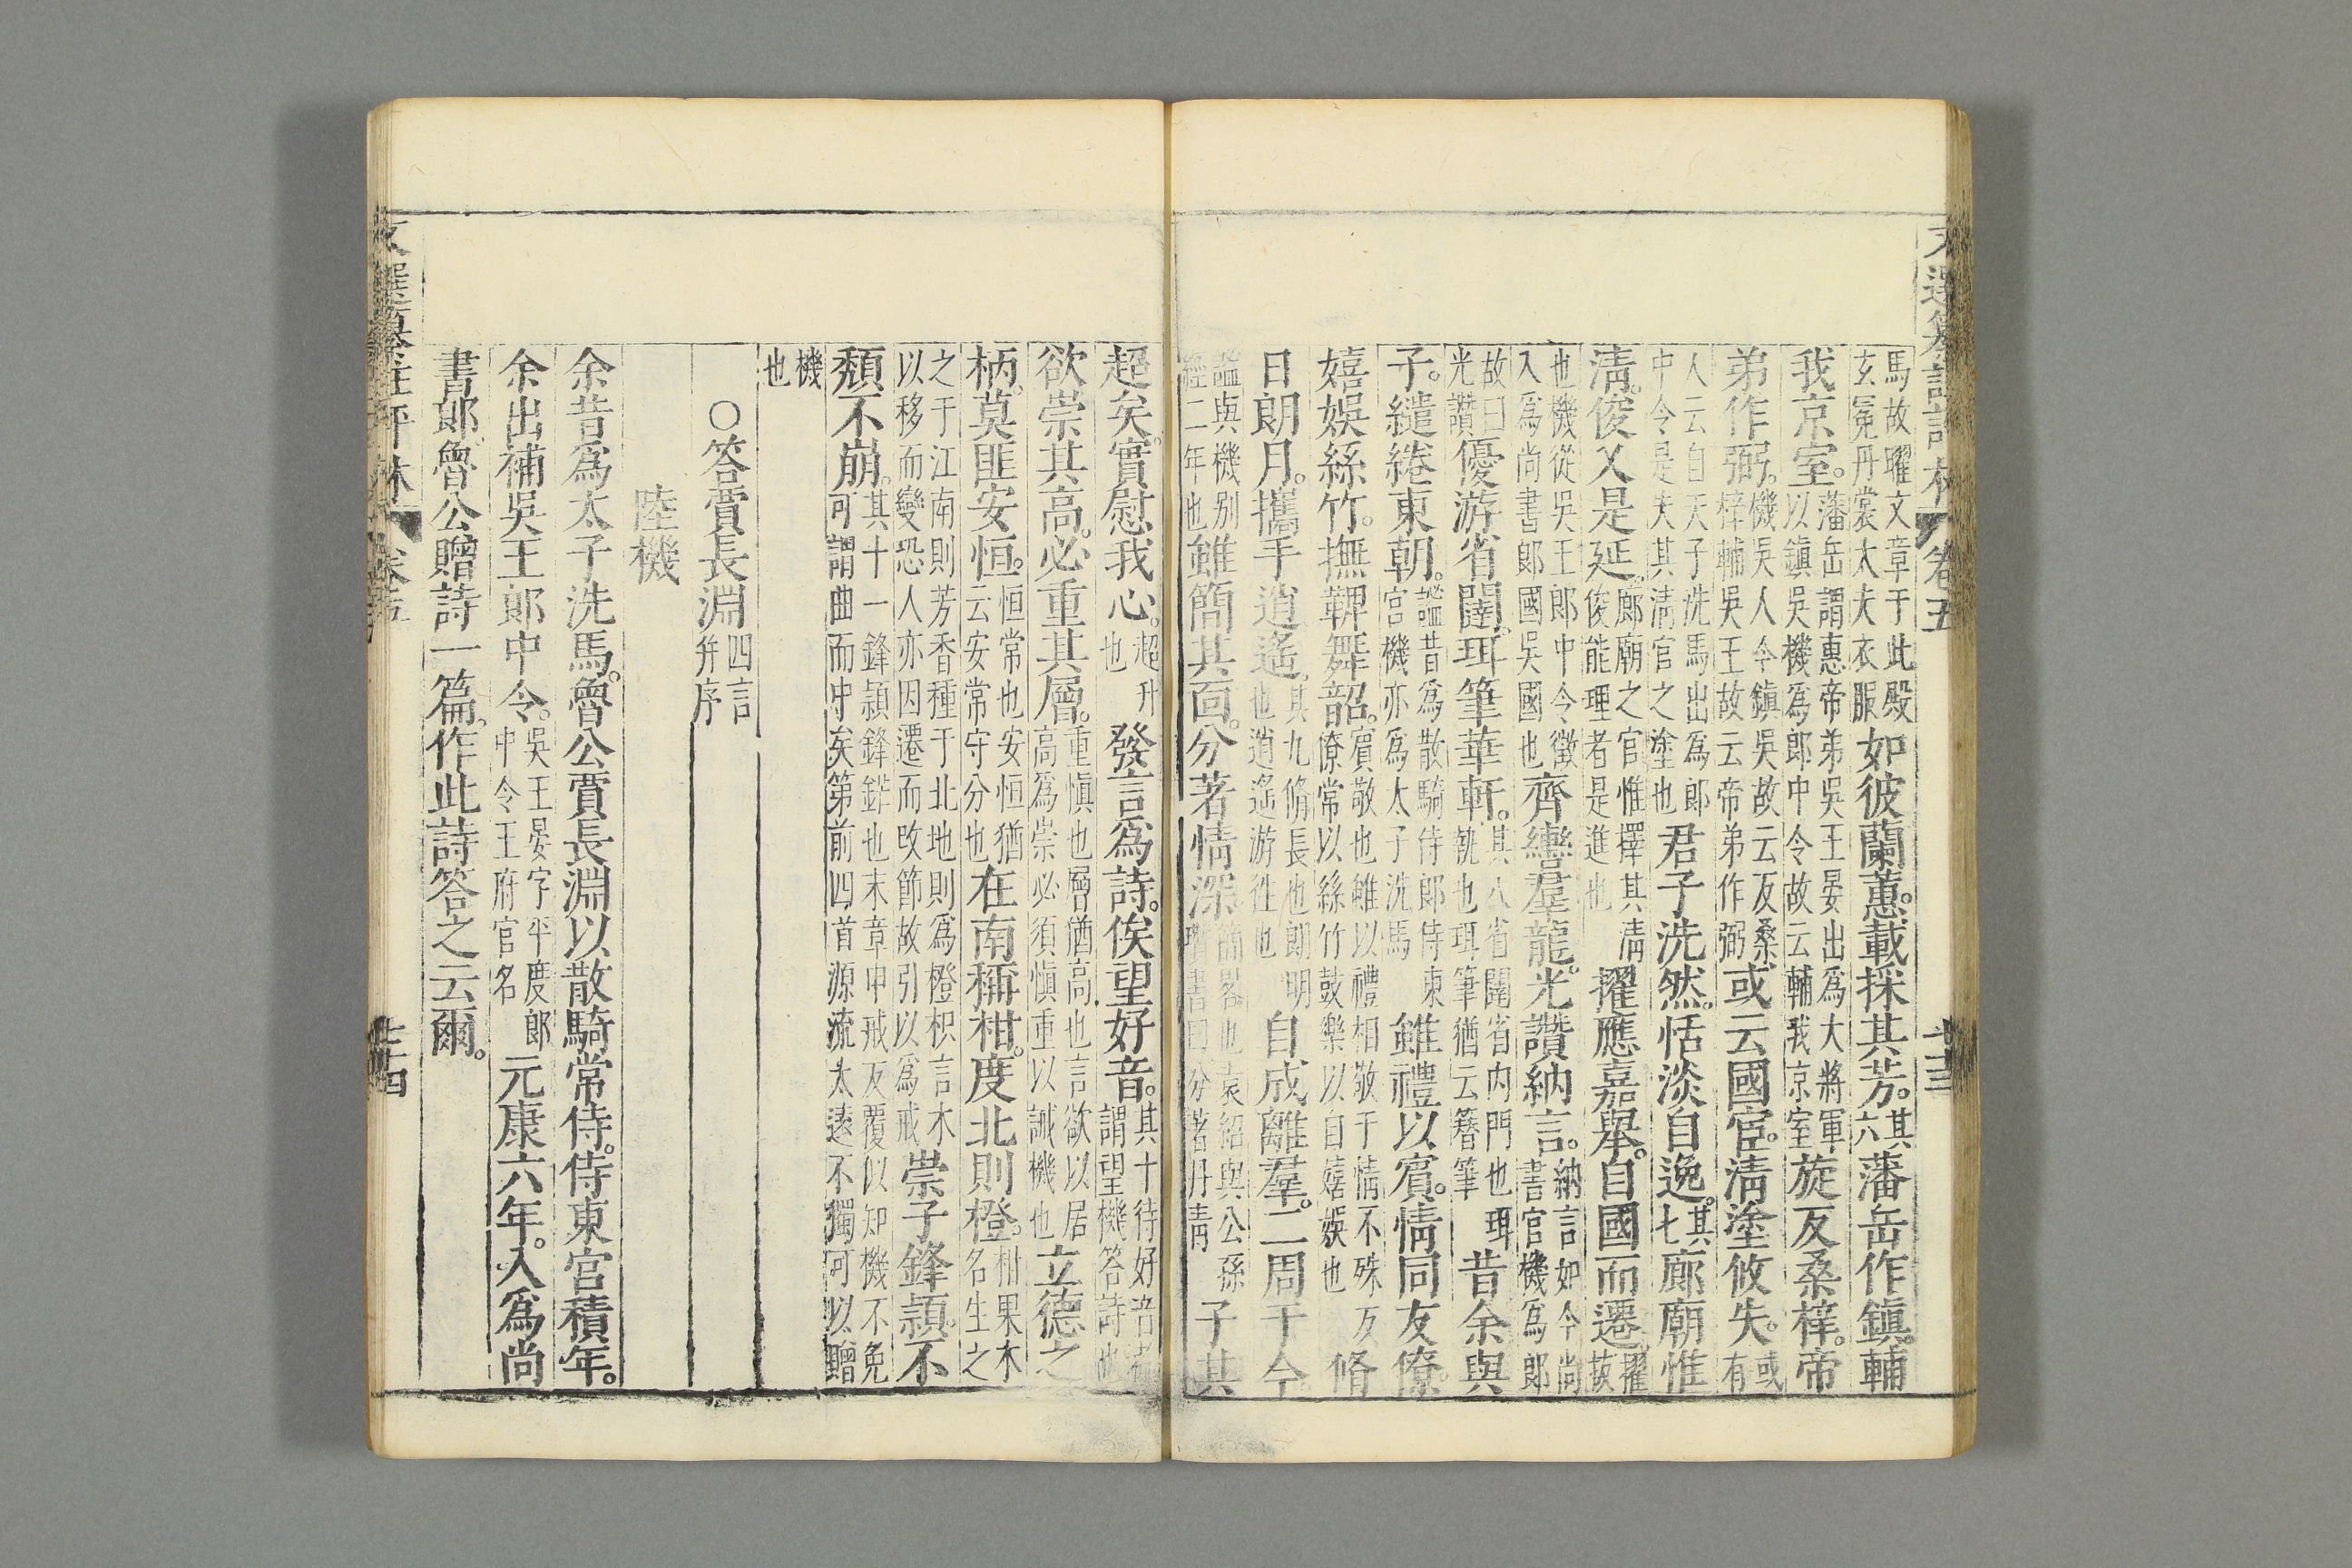 文選纂註評林 卷五 七十三
馬故曜文章于此殿玄冕丹裳大夫衣服如彼蘭蕙。載採其芳。其六藩岳作鎮。輔
我京室。藩岳謂惠帝弟吳王晏出為大將軍以鎮吳機為郎中令故云輔我京室旋反桑梓。帝
弟作弼。機吳人今鎮吳故云反桑梓輔吳王故云帝弟作弼或云國宦。清塗攸失。或有
人云自天子洗馬出為郎中令是失其清官之塗也君子洗然。恬淡自逸。其七廊廟惟
清。俊乂是延。廊廟之官惟擇其清俊能理者是進也擢應嘉舉。自國而遷。擢故
也機從吳王郎中令徵入為尚書郎國吳國也齊轡羣龍。光讚納言。納言如今尚書官機為郎
故曰光讚優游省闥。珥筆華軒。其八省闥省內門也珥執也珥筆猶云簪筆昔余與
子。繾綣東朝。謐昔為散騎侍郎侍東宮機亦為太子洗馬雖禮以賓。情同友僚。
嬉娛絲竹。撫鞞舞韶。賓敬也雖以禮相敬于情不殊友僚常以絲竹鼓樂以自嬉娛也脩
日朗月。攜手逍遙。其九脩長也朗明也逍遙游徃也自成離羣。二周于今。
謐與機別經二年也雖簡其面。分著情深。簡畧也袁紹與公孫瓚書曰分著丹青子其
超矣。實慰我心。超升也發言為詩。俟望好音。其十待好音者謂望機答詩也
欲崇其高。必重其層。重慎也層猶高也言欲以居高為崇必須慎重以誡機也立德之
柄。莫匪安恒。恒常也安恒猶云安常守分也在南稱柑。度北則橙。柑果木名生之
之于江南則芳香種于北地則為橙枳言木以移而變恐人亦因遷而改節故引以為戒崇子鋒穎。不
頹不崩。其十一鋒穎鋒鋩也末章申戒反覆似知機不免可謂曲而中矣第前四首源流太遠不獨可以贈
機也
○答賈長淵四言并序
陸機
余昔為太子洗馬。魯公賈長淵以散騎常侍。侍東宮積年。
余出補吳王郎中令。吳王晏字平度郎中令王府官名元康六年。入為尚
書郎。魯公贈詩一篇。作此詩答之云爾。
文選纂註評林 卷五 七十四